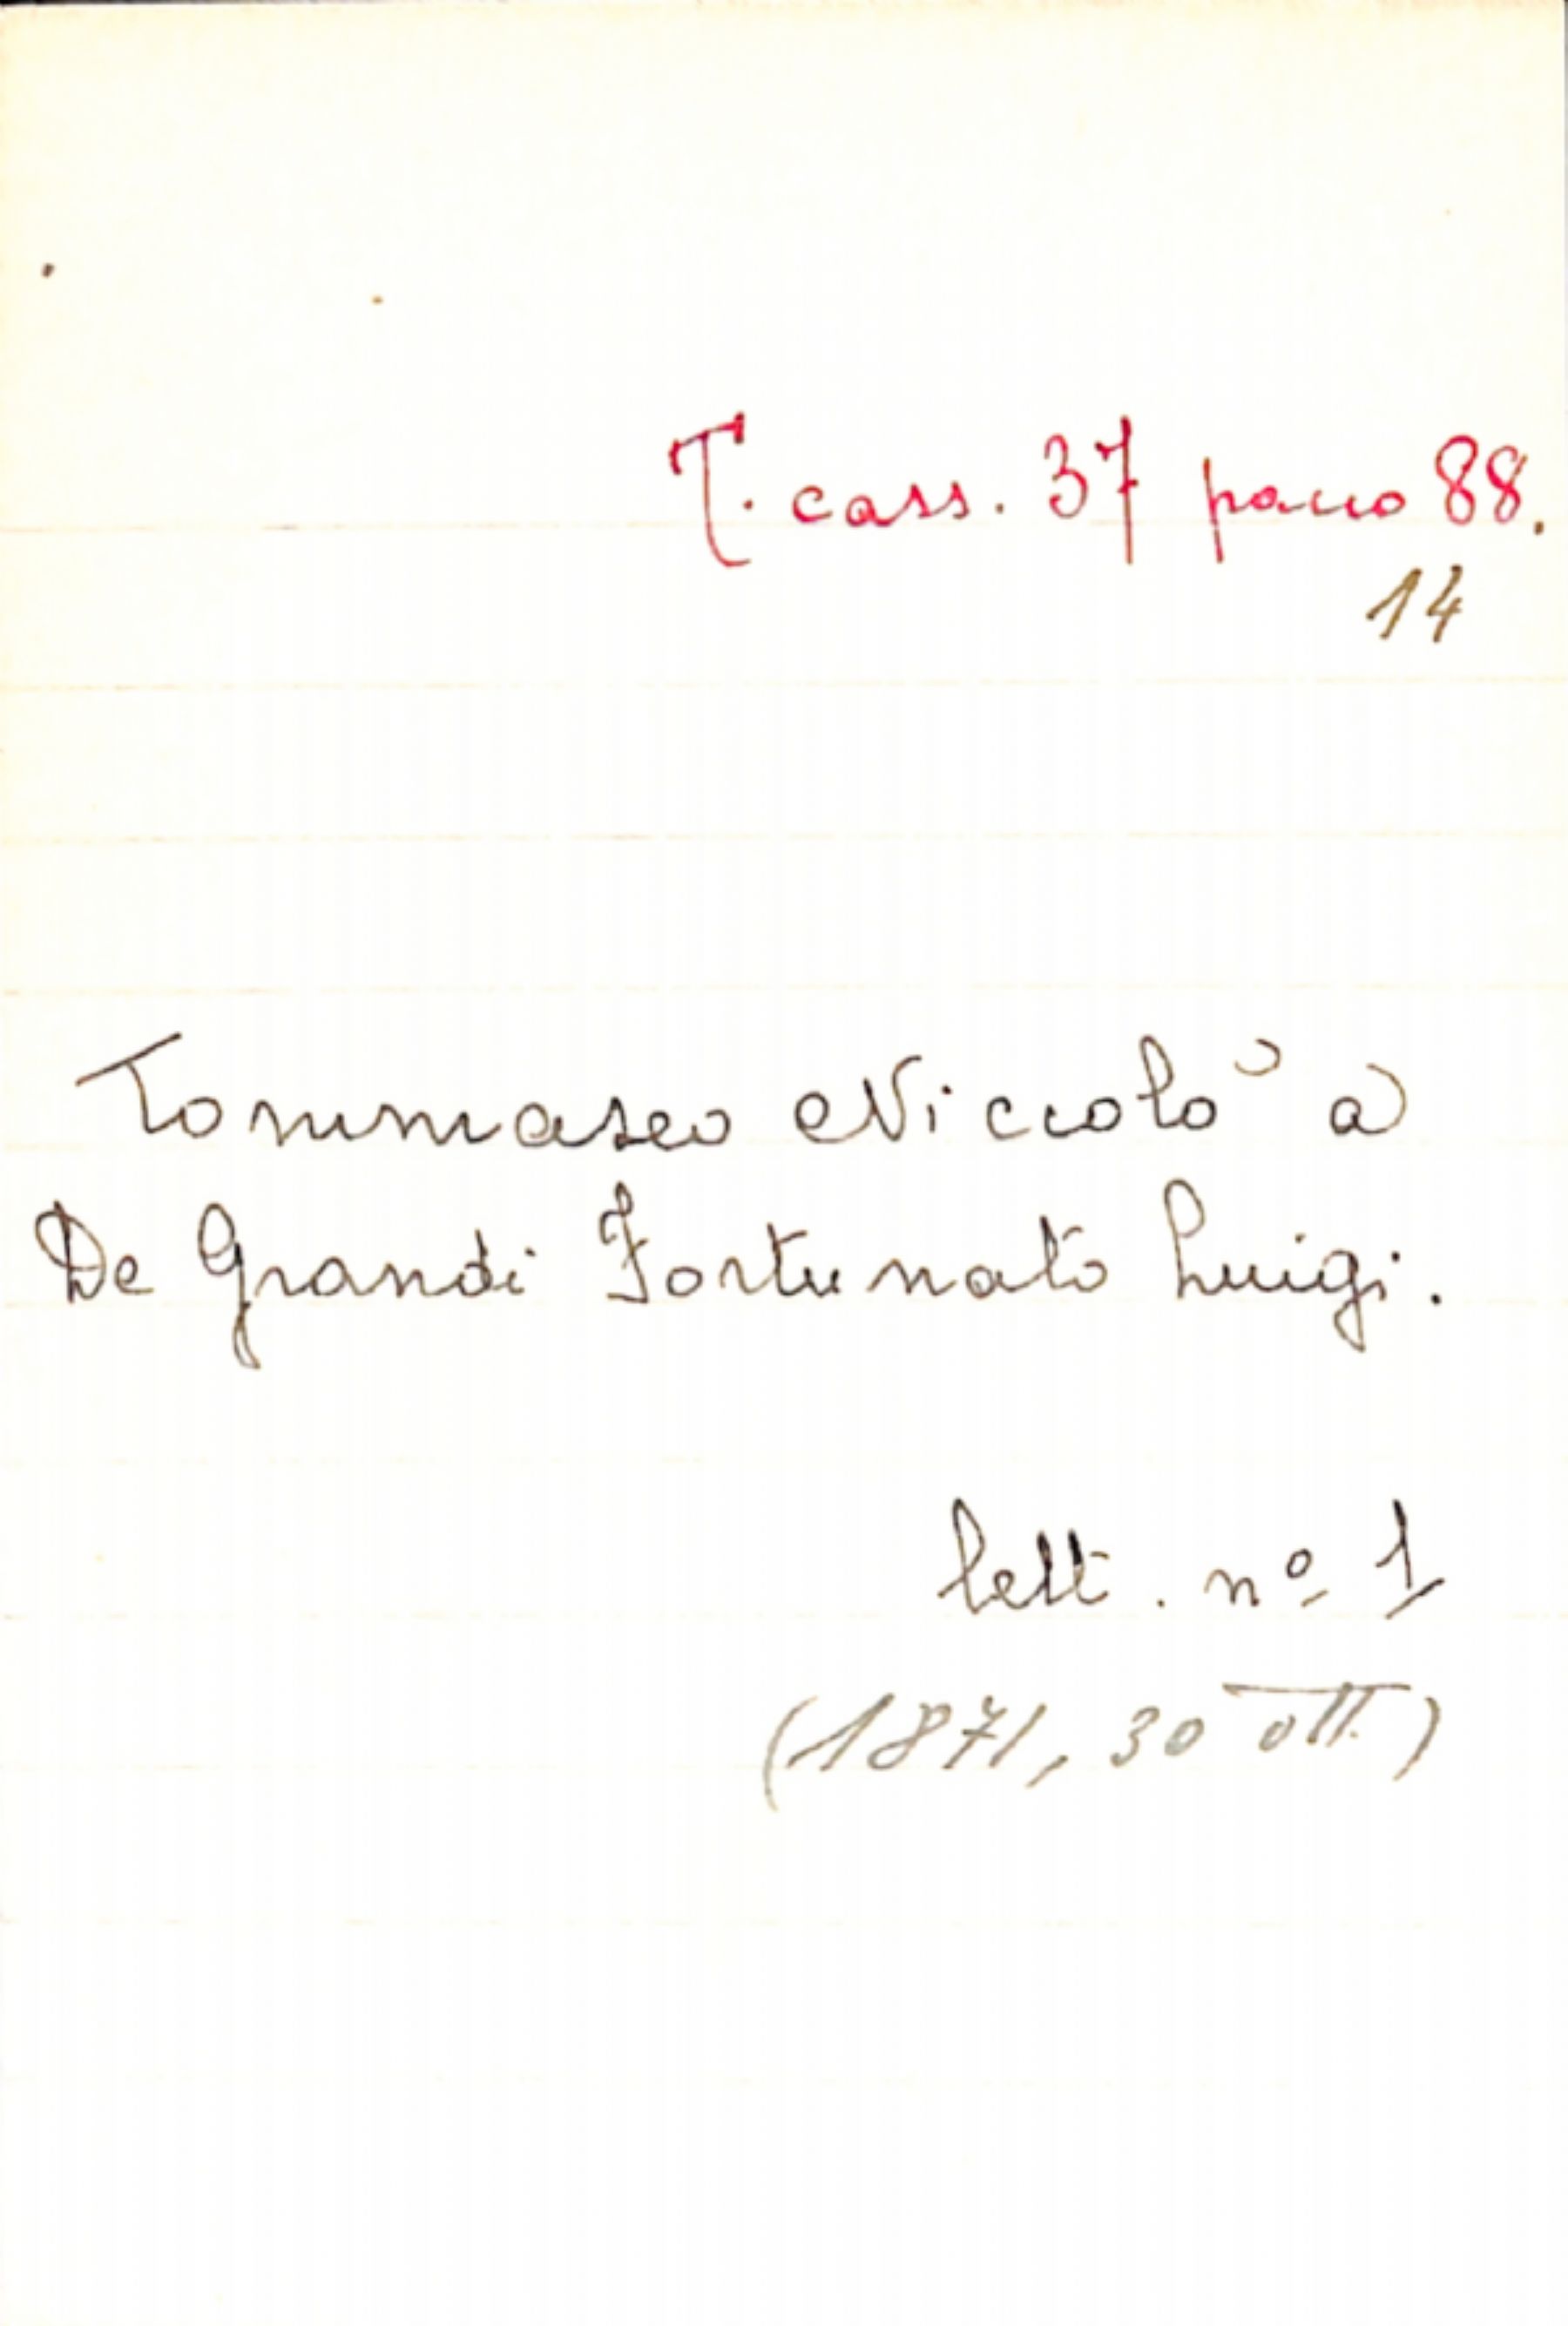 T. cass. 37 pacco 88.
14
Tommaseo Niccolò a
De Grandi Fortunato Luigi.
lett. nº 1
(1871, 30 ott.)